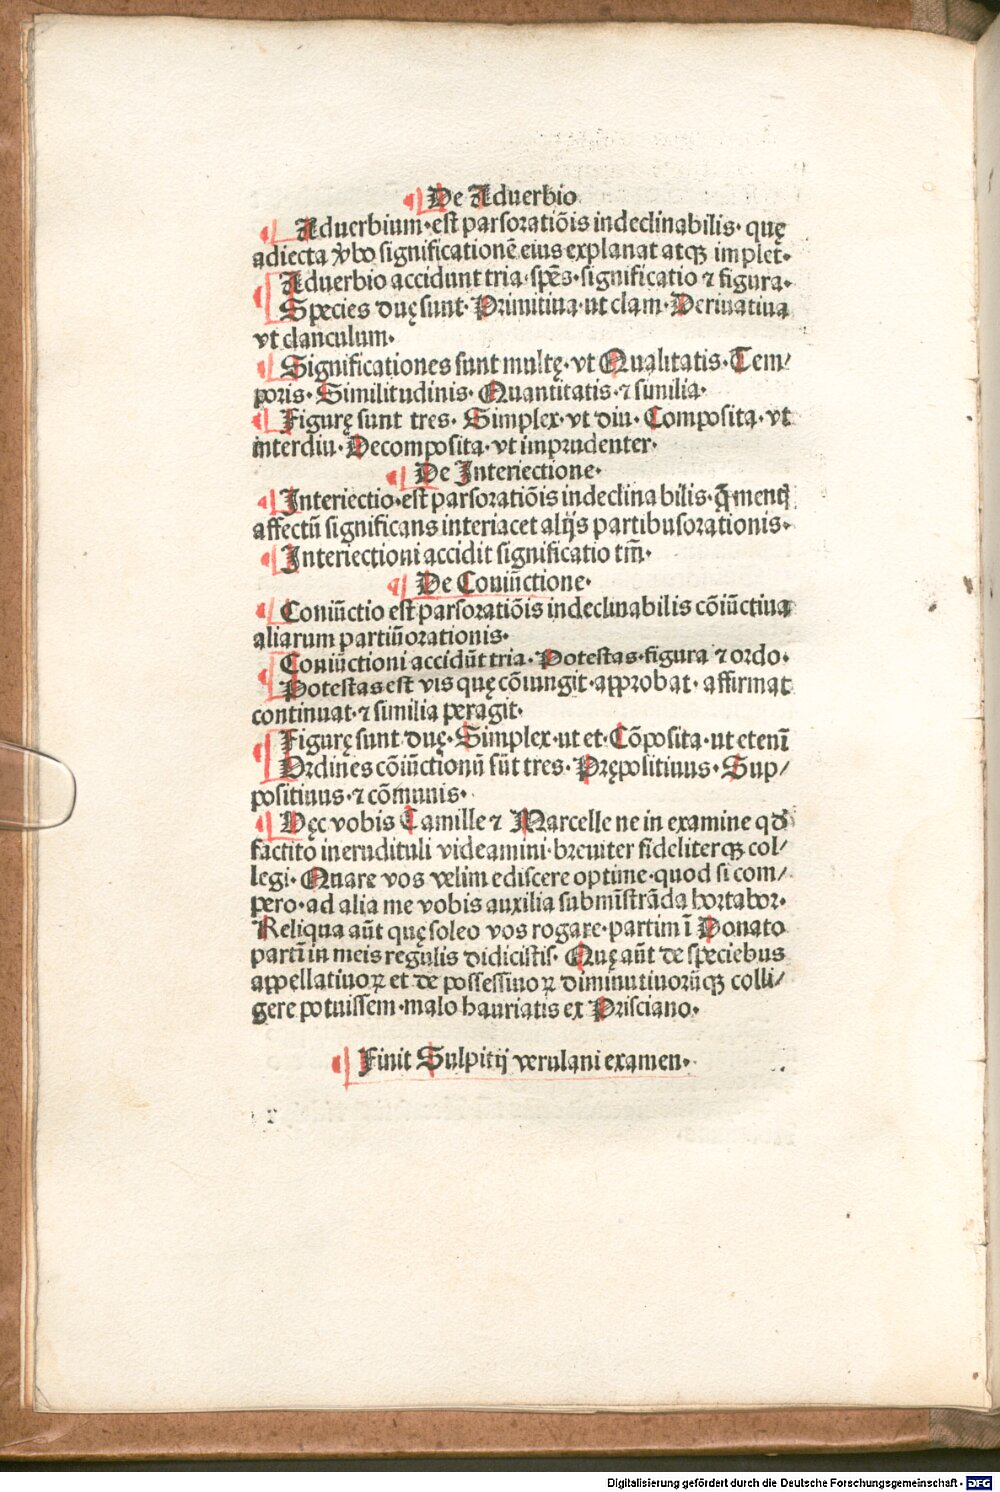 ¶ De Aduerbio
¶ Aduerbium·est parsoratiõis indeclinabilis· quę
adiecta v̾bo significationẽ eius explanat atqꝫ implet·
Aduerbio accidunt tria·spẽs·significatio ⁊ figura·
Species duę sunt· Primitiua·ut clam· Deriuatiua
vt clanculum·
¶ Significationes sunt multę·vt Qualitatis·Tem/
poris·Similitudinis· Quantitatis·⁊ similia·
¶ Figurę sunt tres· Simplex·vt diu· Composita·vt
interdiu·Decomposita·vt imprudenter·
¶ De Interiectione·
¶ Interiectio·est parsoratiõis indeclina bilis·q̃ mentꝭ
affectũ significans interiacet alijs partibusorationis·
¶ Interiectioni accidit significatio tm̃·
¶ De Coniũctione·
¶ Coniũctio est parsoratiõis indeclinabilis cõiũctiua
aliarum partiũorationis·
Coniũctioni accidũt tria·Potestas·figura ⁊ ordo·
Potestas est vis quę cõiungit·approbat·affirmat
continuat·⁊ similia peragit·
¶ Figurę sunt duę·Simplex·ut et·Cõposita·ut etenĩ
Ordines cõiũctionũ sũt tres·Prępositiuus·Sup/
positiuus·⁊ cõmunis·
¶ Hęc vobis Camille ⁊ Marcelle ne in examine qđ
factito inerudituli videamini·breuiter fideliterqꝫ col/
legi· Quare vos velim ediscere optime·quod si com/
pero·ad alia me vobis auxilia submĩstrãda hortabor·
Reliqua aũt quę soleo vos rogare·partim ĩ Donato
partĩ in meis regulis didicistis· Quę aũt de speciebus
appellatiuoꝝ et de possessiuoꝝ diminutiuorũqꝫ colli/
gere potuissem·malo hauriatis ex Prisciano·
¶ Finit Sulpitij verulani examen·
Digitalisierung gefördert durch die Deutsche Forschungsgemeinschaft - DFG